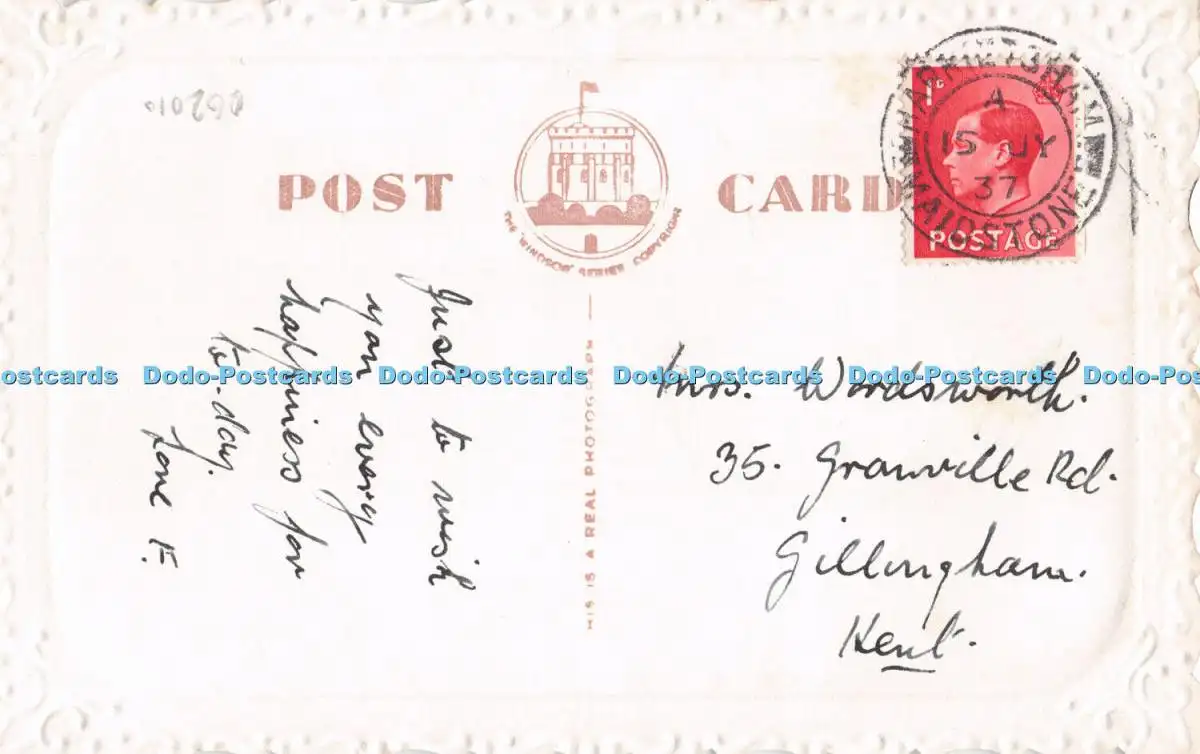 010290
POST CARD
THE 'WINDSOR' SERIES COPYRIGHT
1D
POSTAGE
HARRIETSHAM
A
15 JY
37
MAIDSTONE
Just to wish
you every
happiness for
to-day.
Love F.
HIS IS A REAL PHOTOGRAPH
Mrs. Wordsworth.
35. Granville Rd.
Gillingham.
Kent.
ostcards Dodo-Postcards Dodo-Postcards Dodo-Postcards Dodo-Postcards Dodo-Po